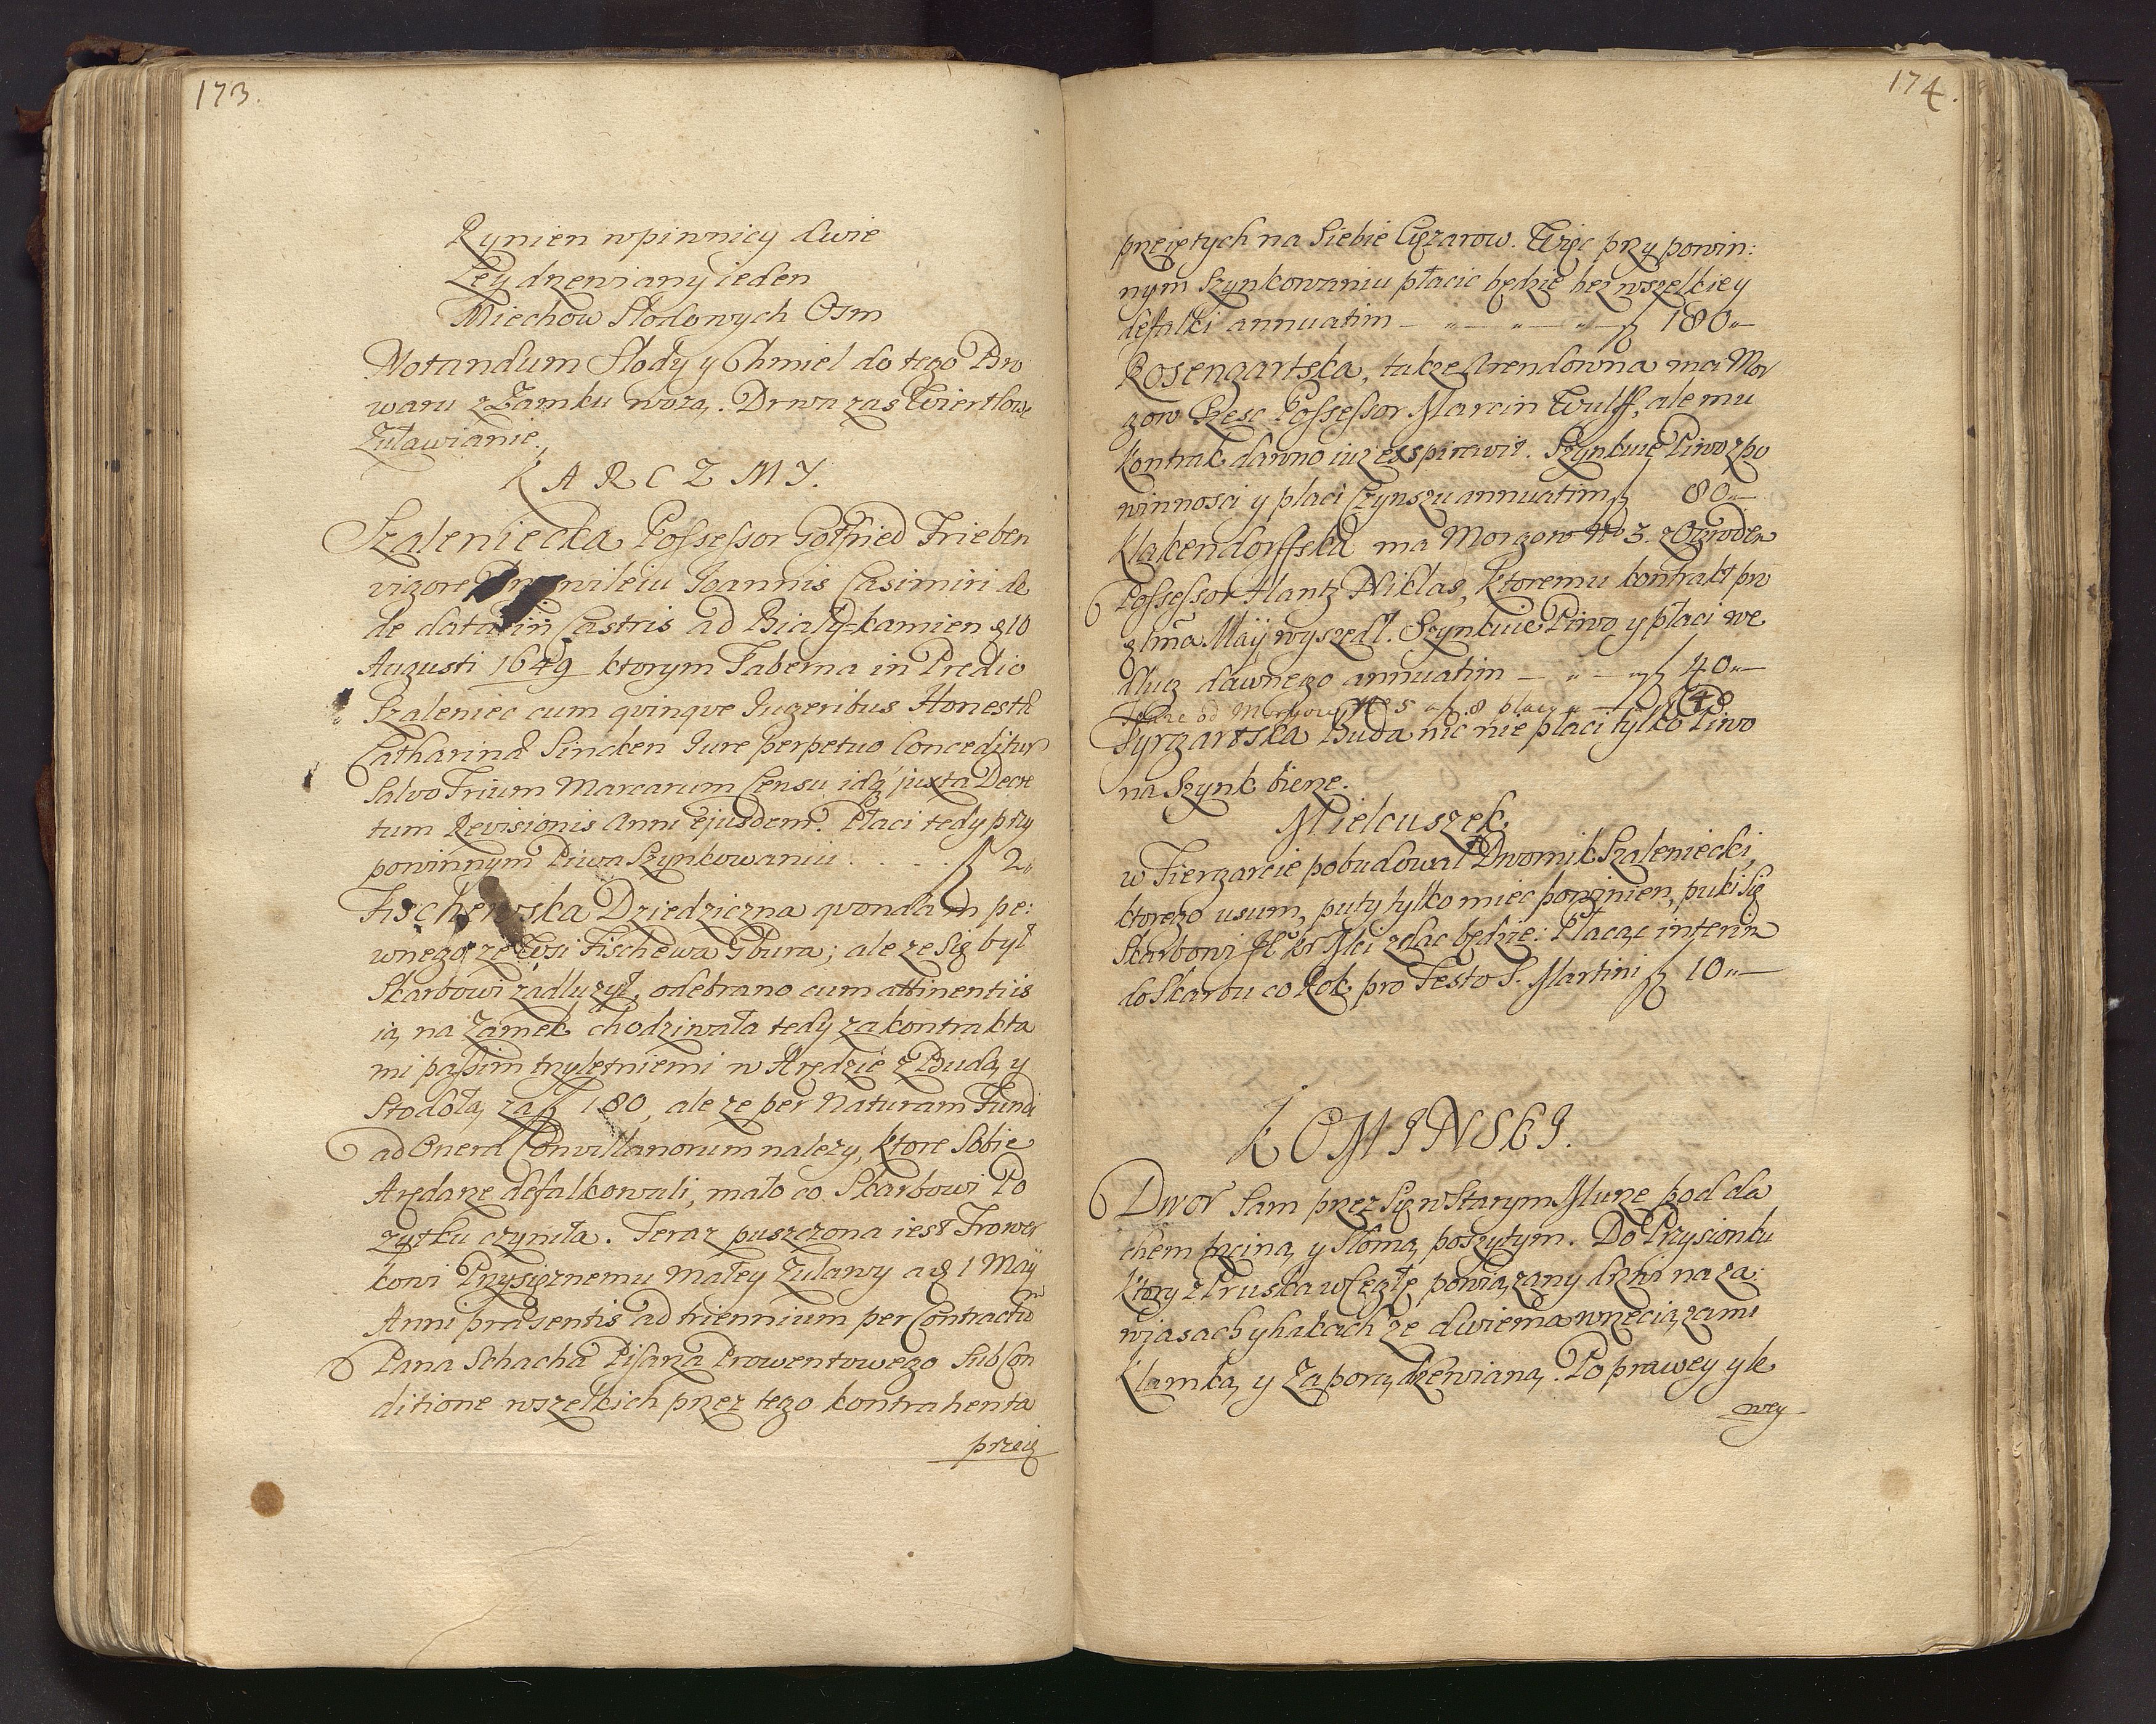 173.
Rynien w piwnicy dwie
Ley drzewiany ieden
Miechow Słodowych Osm
Notandum Słody y Chmiel do tego Bro
waru z Zamku wożą. Drwa zas Wiertlowi
Zuławianie.
KARCZMY.
Szaleniecka Possessor Gotfried Frieben
vigore Przywileiu Joannis Casimiri de
de data in Castris ad Biały-kamien 10
Augusti 1649 ktorym Taberna in Predio
Szaleniec cum qvinqve Jugeribus Honestæ
Catharinæ Sincken Jure perpetuo Conceditur
Salvo Trium Marcarum Censu idq juxta Decre
tum Revisionis Anni ejusdem. Płaci tedy przy
powinnym Piwa Szynkowaniu . . . . f 2
Fischewska Dziedziczna qvondam pe:
wnego ze Wsi Fischewa Gbura; ale ze się był
Skarbowi zadlyżył, odebrano cum attinentiis
ią na Zamek chodziwała tedy za kontrakta
mi passim trzyletniemi w Arędzie z Budą y
Stodołą za f 180, ale ze per Naturam Fundi
ad Onera Convillanorum nalezy, ktore Sobie
Arędarze defalkowali, mało co Skarbowi Po
żytku czyniła. Teraz puszczona iest Frower
kowi Przysięznemu Małey Zuławy a 1 Maÿ
Anni præsentis ad triennium per Contractum
Pana Schacha Pisarza Prowentowego Sub Con
ditione wszelkich przez tego kontrahenta
przeię
174.
przeiętych na Siebie Ciężarow. Więc przy powin:
nym Szynkowaniu płacic będzie bez wszelkiey
defalki annuatim — " — " — " — f 180 "—
Rosengartska, takze Arendowna ma Mor
gow Szesc Possessor Marcin Wulff, ale mu
kontrakt dawno iuz exspirawit. Szynkuie Piwo z po
winnosci y płaci Czynszu annuatim f 80 —
Klakendorffska ma Morgow No 3. z Ogrodem
Possessor Hantz Niklas, ktoremu kontrakt pro
1ma Maÿ wyszedł. Szynkuie Piwo y płaci we
dług dawnego annuatim — " — " f 40 "—
od Morgow No 5 a f 8 płacą — f 40
Tyrgartska Buda nic nie płaci tylko Piwo
na Szynk bierze.
Mielcuszek
w Tiergarcie pobudował Dwornik Szaleniecki,
ktorego usum, puty tylko miec powinien, puki Się
Skarbowi Mci zdac będzie: Płacąc interim
do Skarbu co Rok pro Festo S. Martini f 10 "—
KOMINSKI.
Dwor Sam przez Się w Starym Murze pod da
chem trzciną y Słomą poszytym. Do Przysionku
ktory z Pruska w Cegłę powiązany drzwi na za:
wiasach y hakach ze dwiema wrzeciązami
Klamką y Zaporą drzewianą. Po prawey y le
wey